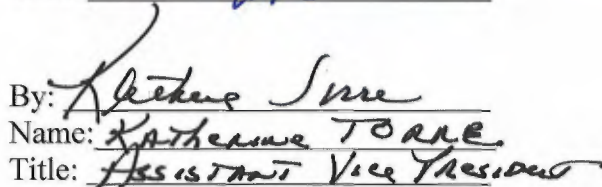 By: Katherine Torre
Name: Katherine Torre
Title: Assistant Vice President